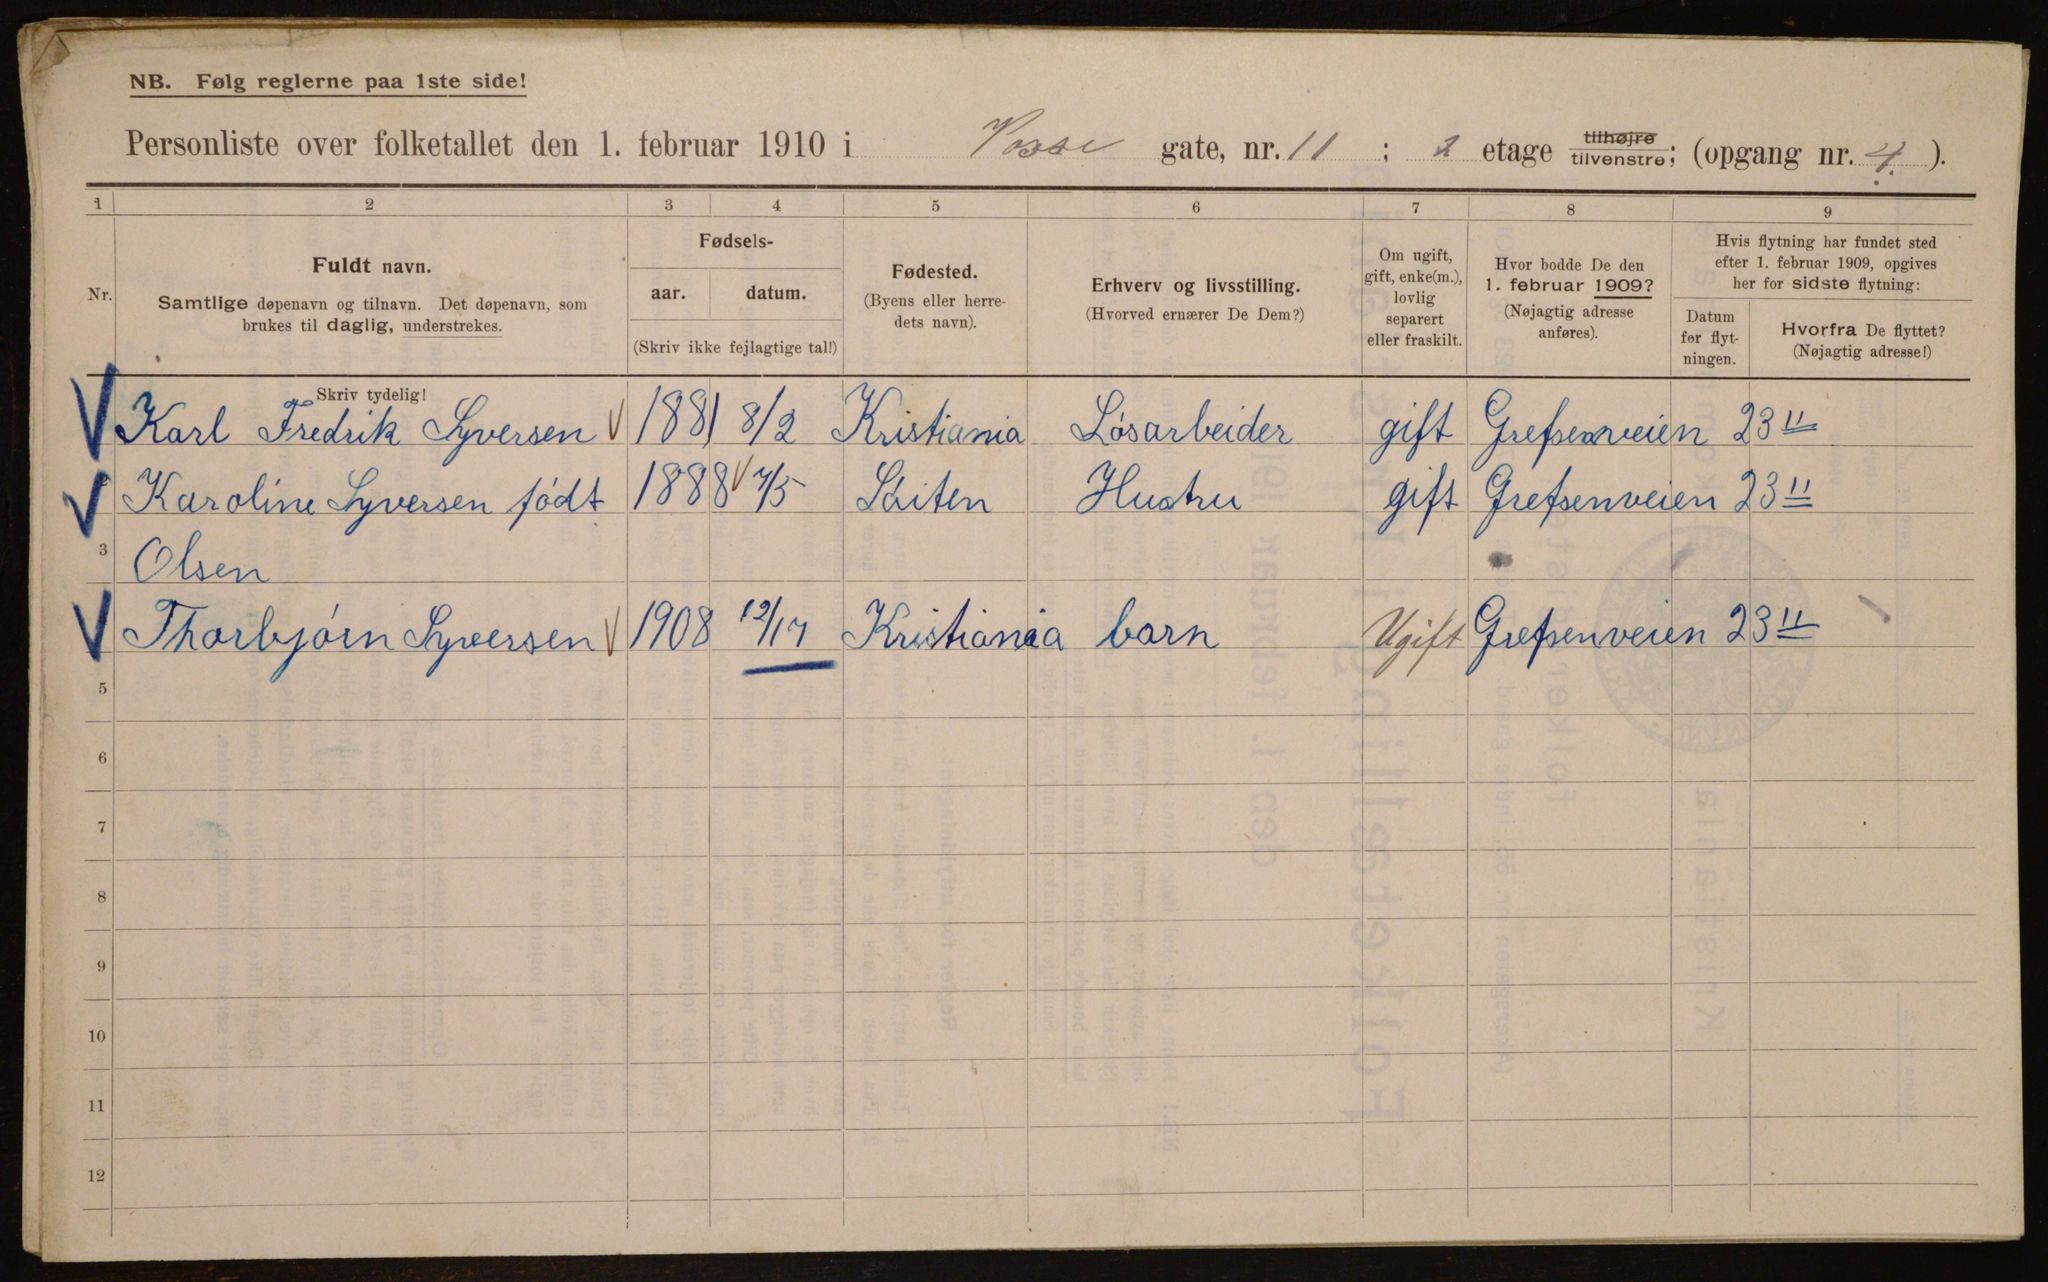 NB. Følg reglerne paa 1ste side!
Personliste over folketallet den 1. februar 1910 i Vosse gate, nr. 11 ; 2 etage tilhøjre tilvenstre; (opgang nr. 4. ).
1 2 3 4 5 6 7 8 9
Nr.
Fuldt navn.
Samtlige døpenavn og tilnavn. Det døpenavn, som
brukes til daglig, understrekes.
Fødsels-
aar. datum.
(Skriv ikke fejlagtige tal!)
Fødested.
(Byens eller herre-
dets navn).
Erhverv og livsstilling.
(Hvorved ernærer De Dem?)
Om ugift,
gift, enke(m.),
lovlig
separert
eller fraskilt.
Hvor bodde De den
1. februar 1909?
(Nøjagtig adresse
anføres).
Hvis flytning har fundet sted
efter 1. februar 1909, opgives
her for sidste flytning:
Datum
før flyt-
ningen.
Hvorfra De flyttet?
(Nøjagtig adresse!)
Skriv tydelig!
Karl Fredrik Syversen 1881 8/2 Kristiania Løsarbeider gift Grefsenveien 23 II
Karoline Syversen født 1888 7/5 Løiten Hustru gift Grefsenveien 23 II
3 Olsen
Thorbjørn Syversen 1908 12/17 Kristiania barn Ugift Grefsenveien 23 II
5
6
7
8
9
10
11
12